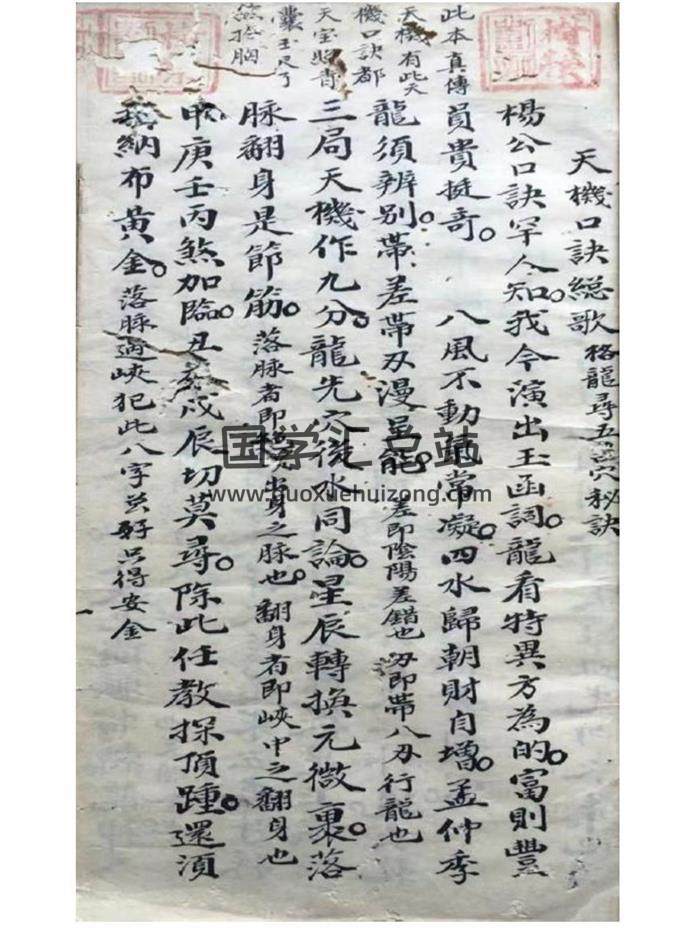 天機口訣総歌 格龍尋五穴秘訣
楊公口訣罕人知。我今演出玉函詞。龍看特異方為的。富則豐
員貴挺奇。 八風不動氣常凝。四水歸朝財自增。孟仲季
龍須辨別。帶差帶刃漫呈能。差即陰陽差錯也 刃即帶八刃行龍也
三局天機作九分。龍先穴後水同論。星辰轉換元微裏。落
脉翻身是節筋。落脉者即出身之脉也。翻身者即峽中之翻身也
甲庚壬丙煞加臨。丑未戌辰切莫尋。除此任教探頂踵。還須
納布黃金。落脉過峽犯此八字 只得安金
此本真傳
天機有此天
機口訣都
天宝照
玉尺了
胸
国学汇总站
www.guoxuehuizong.com